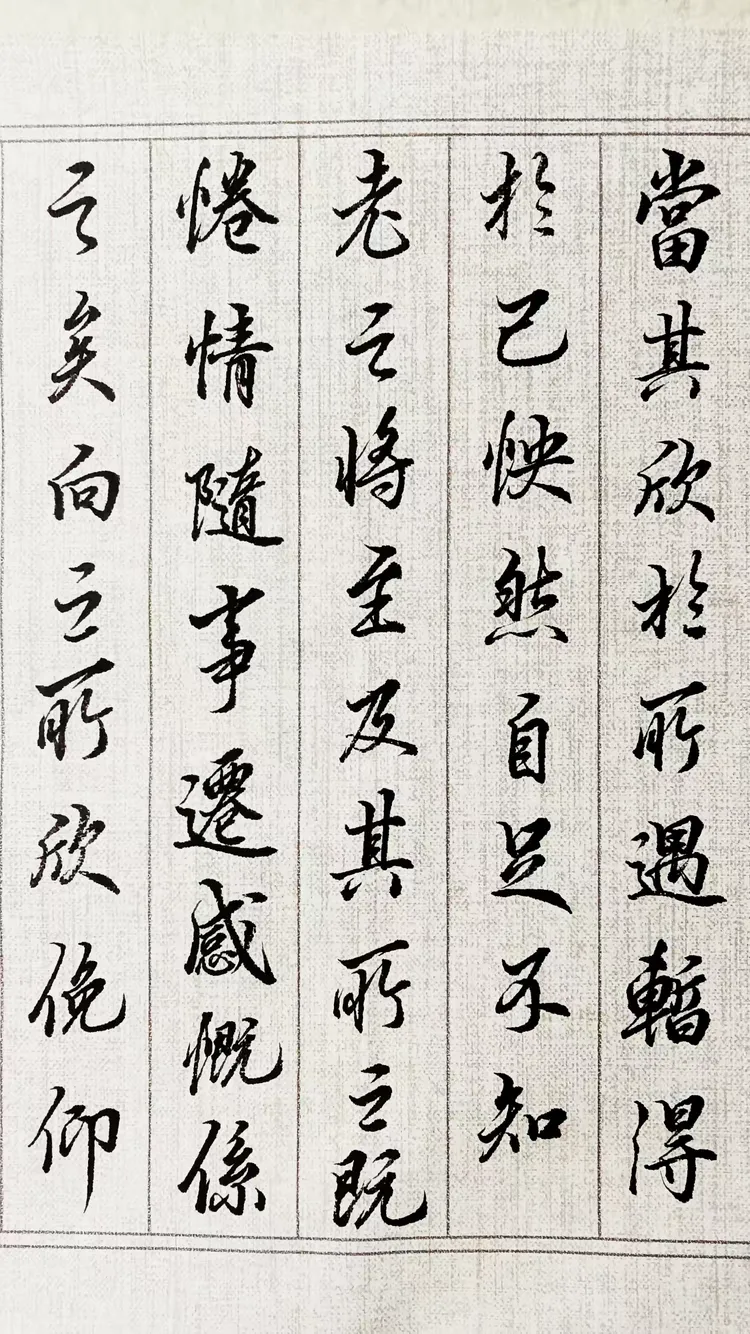 當其欣於所遇暫得
於己怏然自足不知
老之將至及其所之既
惓情隨事遷感慨係
之矣向之所欣俛仰